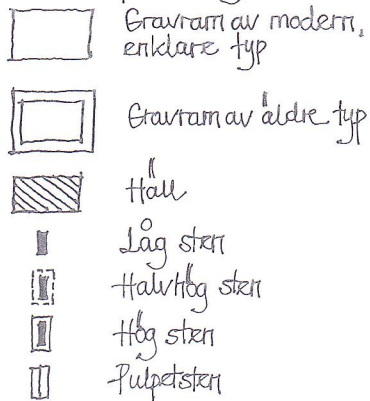 Gravram av modern,
enklare typ
Gravram av äldre typ
Häll
Låg sten
Halvhög sten
Hög sten
Pulpetsten